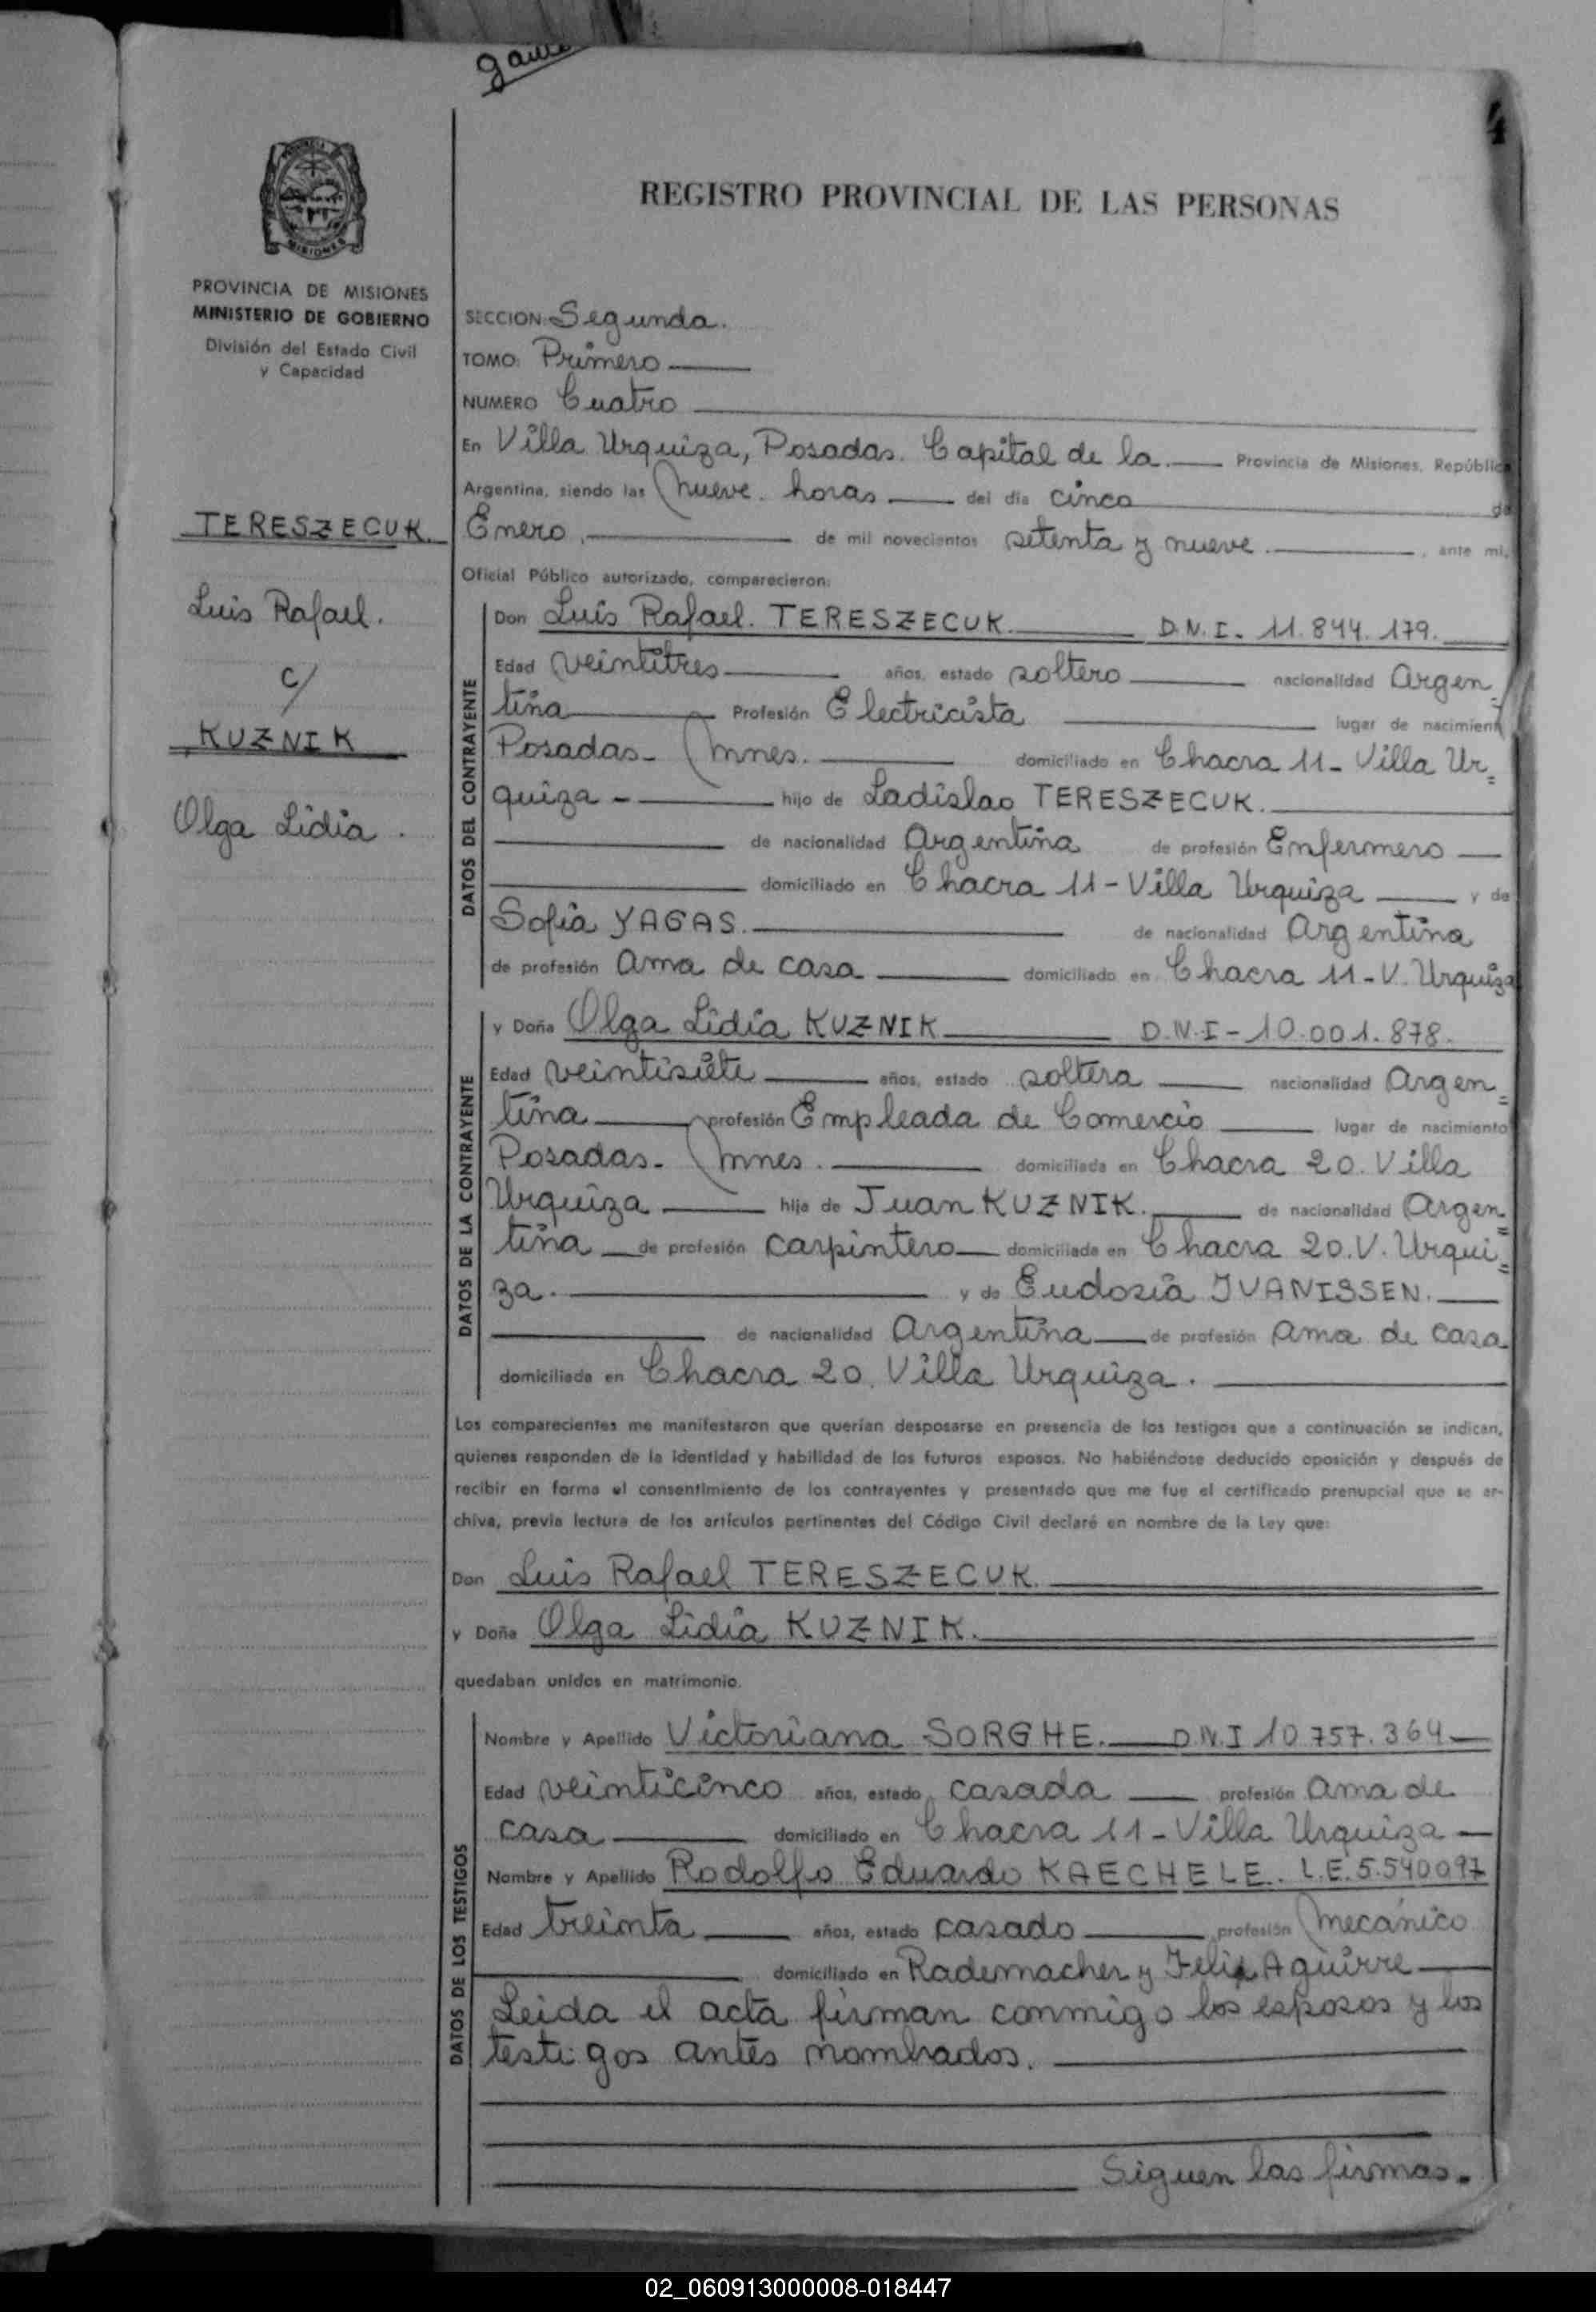 4
REGISTRO PROVINCIAL DE LAS PERSONAS
MISIONES
PROVINCIA DE MISIONES
MINISTERIO DE GOBIERNO
División del Estado Civil
y Capacidad
TERESZECUK.
Luis Rafael.
c/
KUZNIK
Olga Lidia.
SECCION: Segunda.
TOMO: Primero
NUMERO Cuatro
En Villa Urquiza, Posadas. Capital de la. Provincia de Misiones, República
Argentina, siendo las nueve horas del día cinco de
Enero. de mil novecientos setenta y nueve. , ante mi,
Oficial Público autorizado, comparecieron:
DATOS DEL CONTRAYENTE
Don Luis Rafael. TERESZECUK. D.N.I. 11.844.179.
Edad veintitres años, estado soltero nacionalidad Argen=
tina Profesión Electricista lugar de nacimient
Posadas- Mnes. domiciliado en Chacra 11- Villa Ur=
quiza - hijo de Ladislao TERESZECUK.
de nacionalidad Argentina de profesión Enfermero
domiciliado en Chacra 11- Villa Urquiza y de
Sofia YAGAS. de nacionalidad Argentina
de profesión ama de casa domiciliado en Chacra 11-V. Urquiza
DATOS DE LA CONTRAYENTE
y Doña Olga Lidia KUZNIK D.N.I- 10.001.878.
Edad veintisiete años, estado soltera nacionalidad Argen=
tina profesión Empleada de Comercio lugar de nacimiento
Posadas- Mnes. domiciliada en Chacra 20. Villa
Urquiza hija de Juan KUZNIK. de nacionalidad Argen=
tina de profesión carpintero domiciliada en Chacra 20.V. Urqui=
za. y de Eudosia IVANISSEN.
de nacionalidad Argentina de profesión ama de casa
domiciliada en Chacra 20. Villa Urquiza.
Los comparecientes me manifestaron que querían desposarse en presencia de los testigos que a continuación se indican,
quienes responden de la identidad y habilidad de los futuros esposos. No habiéndose deducido oposición y después de
recibir en forma el consentimiento de los contrayentes y presentado que me fue el certificado prenupcial que se ar-
chiva, previa lectura de los artículos pertinentes del Código Civil declaré en nombre de la Ley que:
Don Luis Rafael TERESZECUK.
y Doña Olga Lidia KUZNIK.
quedaban unidos en matrimonio.
DATOS DE LOS TESTIGOS
Nombre y Apellido Victoriana SORGHE. D.N.I 10.757.364
Edad veinticinco años, estado casada profesión ama de
casa domiciliado en Chacra 11- Villa Urquiza
Nombre y Apellido Rodolfo Eduardo KAECHELE. L.E. 5.540097
Edad treinta años, estado casado profesión mecánico
domiciliado en Rademacher y Felix Aguirre
Leida el acta firman conmigo los esposos y los
testigos antes nombrados.
Siguen las firmas.
02_060913000008-018447